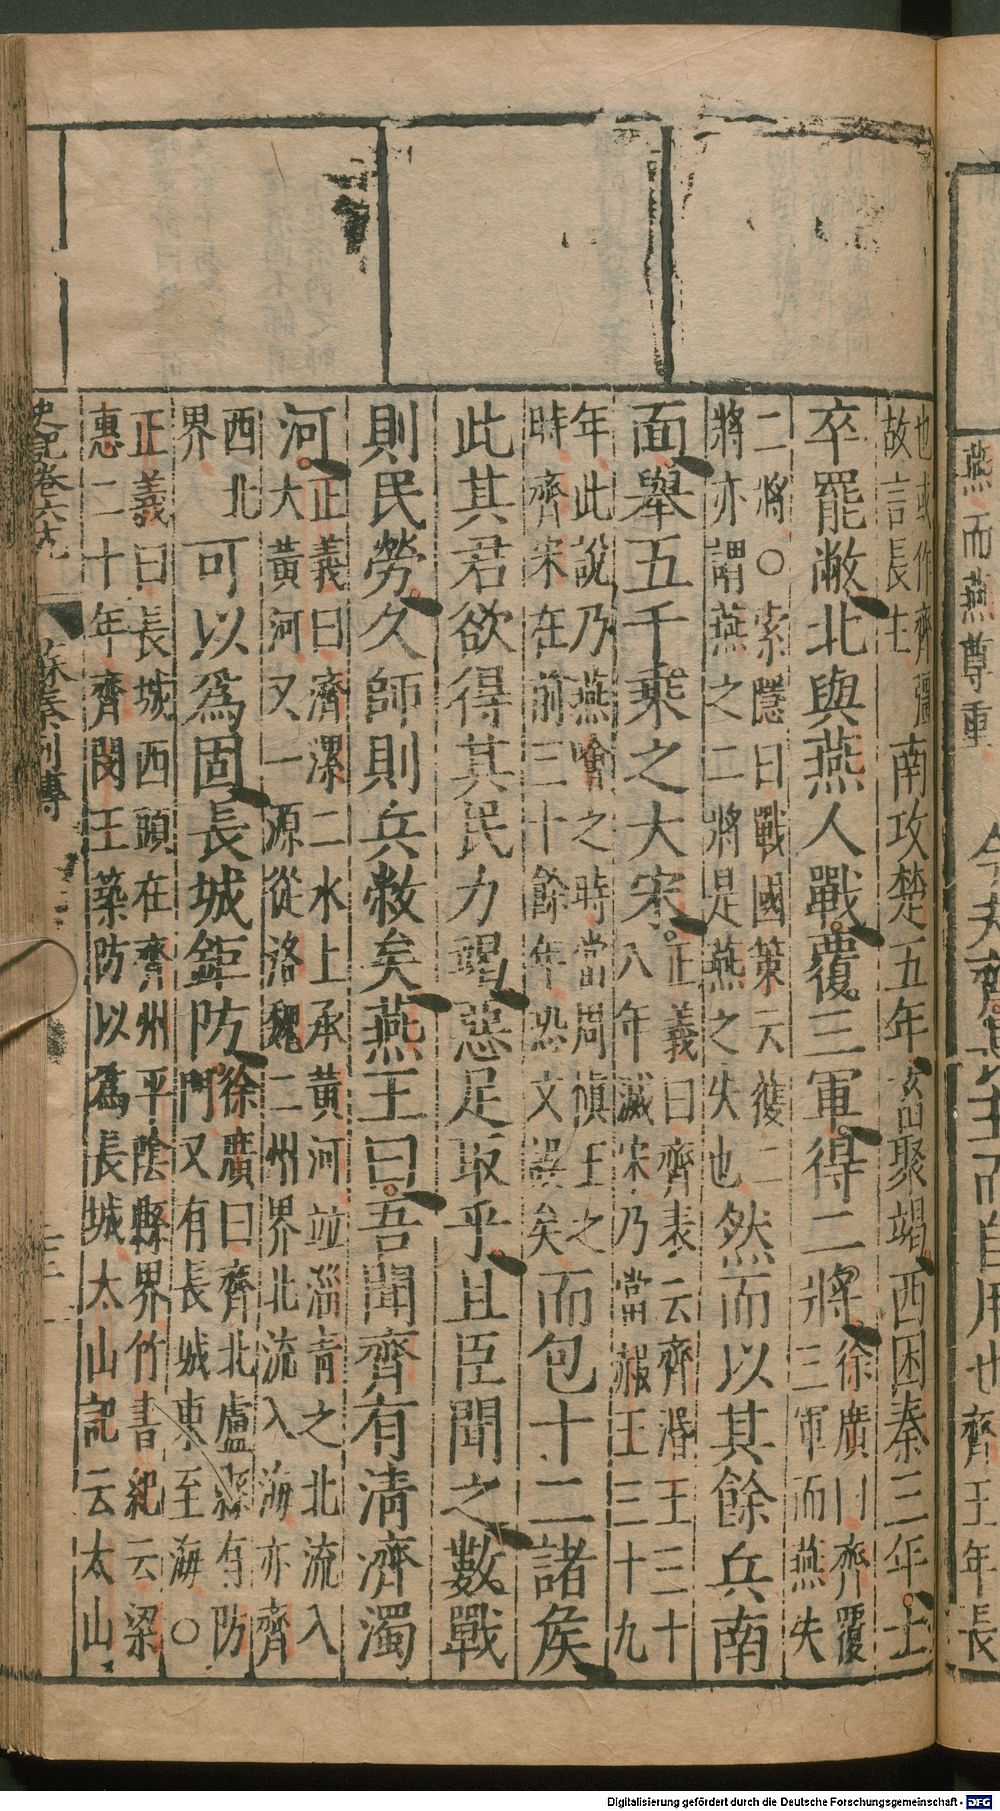 燕而燕尊重
今夫齊長主而自用也齊王年長
也或作齊彊
故言長主
南攻楚五年畜聚竭西困秦三年士
卒罷敝北與燕人戰覆三軍得二將
徐廣曰齊覆
三軍而燕失
二將○索隱曰戰國策云獲二
將亦謂燕之二將是燕之失也
然而以其餘兵南
面舉五千乘之大宋
正義曰齊表云齊湣王三十
八年滅宋乃當赧王三十九
年此說乃燕噲之時當周慎王之
時齊宋在前三十餘年恐文誤矣
而包十二諸侯
此其君欲得其民力竭惡足取乎且臣聞之數戰
則民勞久師則兵敝矣燕王曰吾聞齊有清濟濁
河
正義曰濟漯二水上承黃河竝淄青之北流入
大黃河又一源從洛魏二州界北流入海亦齊
西北
界
可以爲固長城鉅防
徐廣曰齊北盧縣有防
門又有長城東至海○
正義曰長城西頭在齊州平陰縣界竹書紀云梁
惠二十年齊閔王築防以爲長城太山記云太山
史記卷六十九
蘇秦列傳
Digitalisierung gefördert durch die Deutsche Forschungsgemeinschaft - DFG